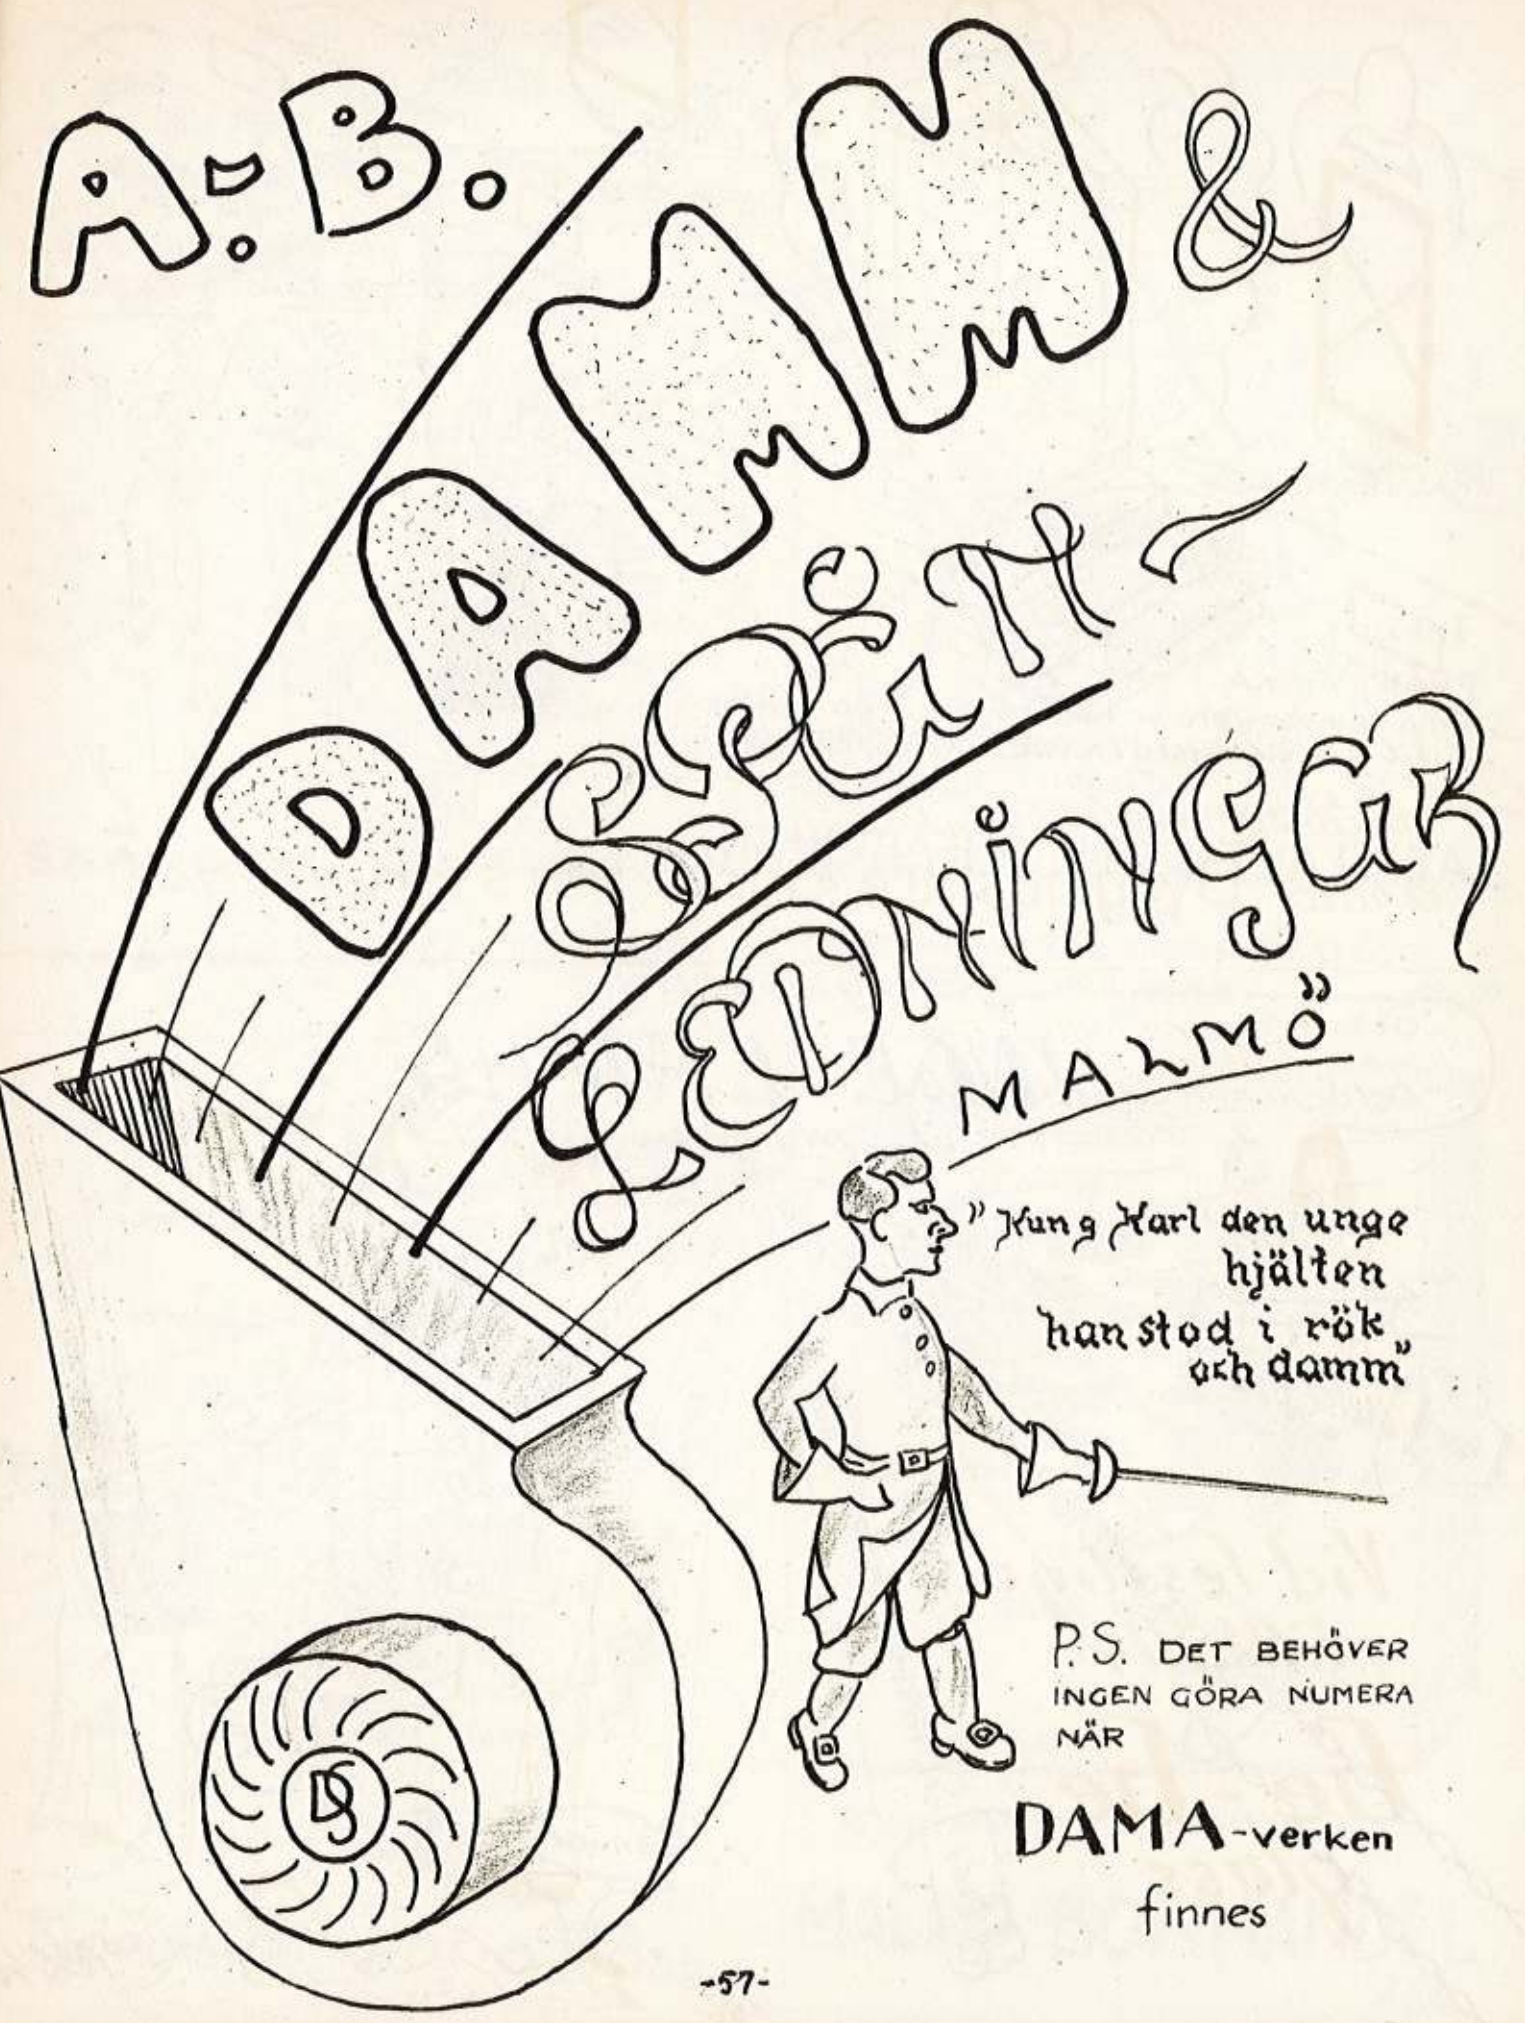 A.-B.
DAMM &
SPÅN-
LEDNINGAR
MALMÖ
"Kung Karl den unge
hjälten
han stod i rök
och damm"
P.S. DET BEHÖVER
INGEN GÖRA NUMERA
NÄR
DAMA-verken
finnes
DS
-57-